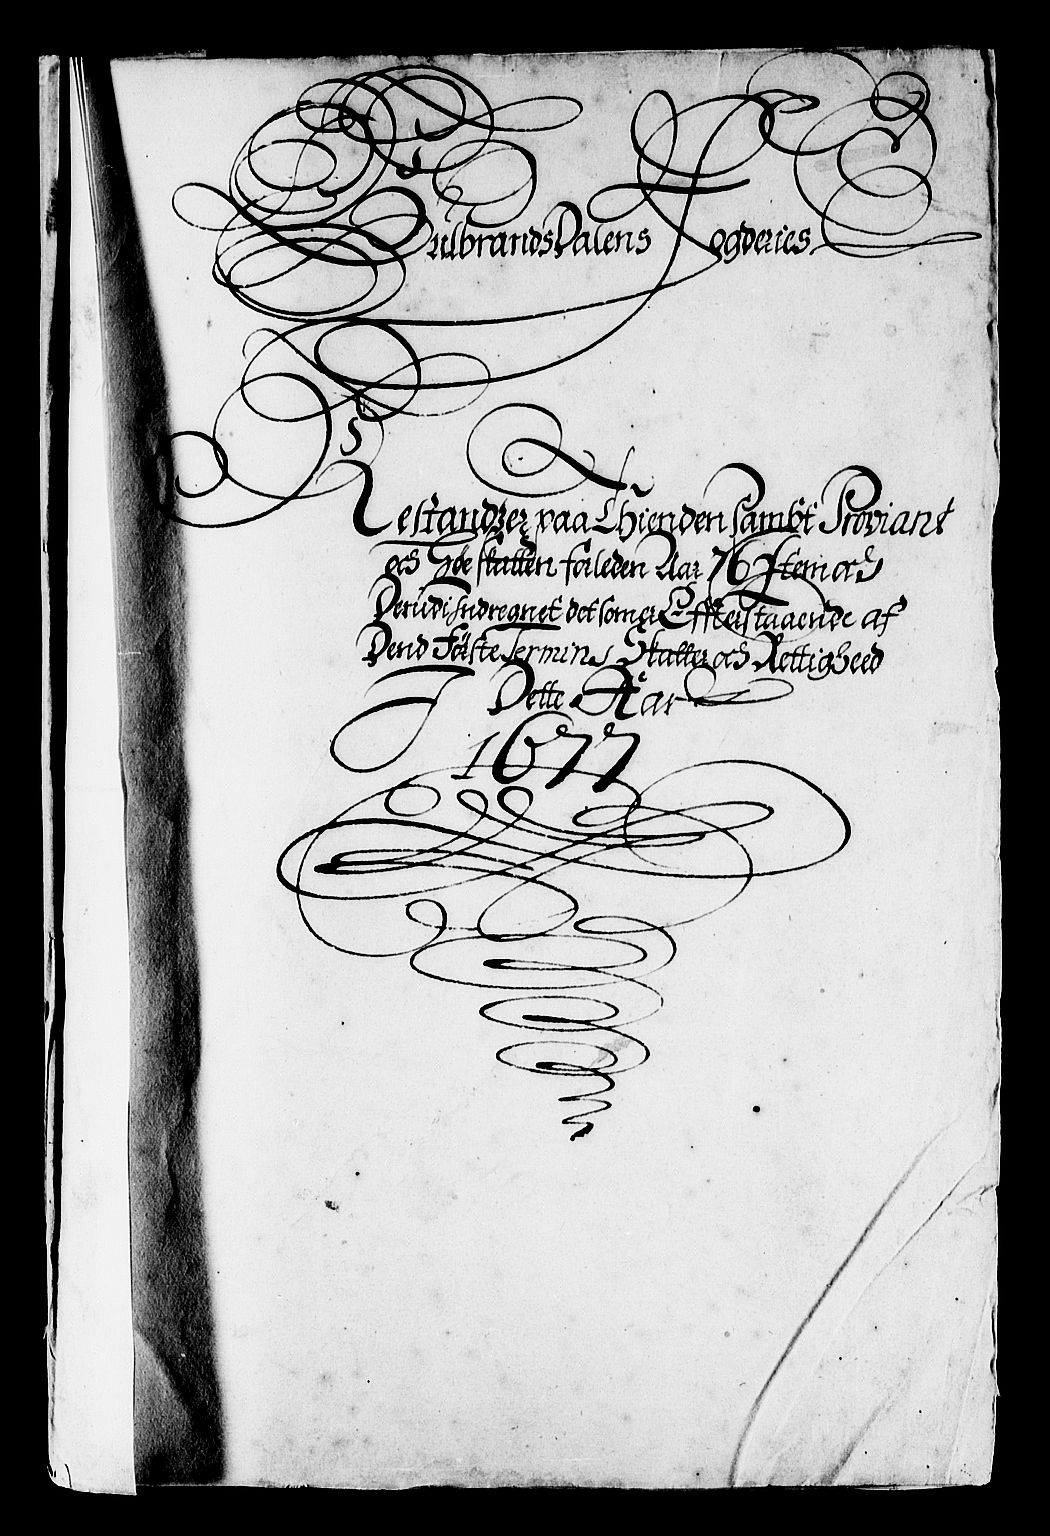 GulbrandsDalens Fogderies
Restandzer paa Thienden sampt Proviant
och Foeskatten forleden Aar 76 Item och
Derudi Indregnet det som er Effterstaaende af
Dend Förste Termins Skatter och Rettigheed
I Dette Aar
1677